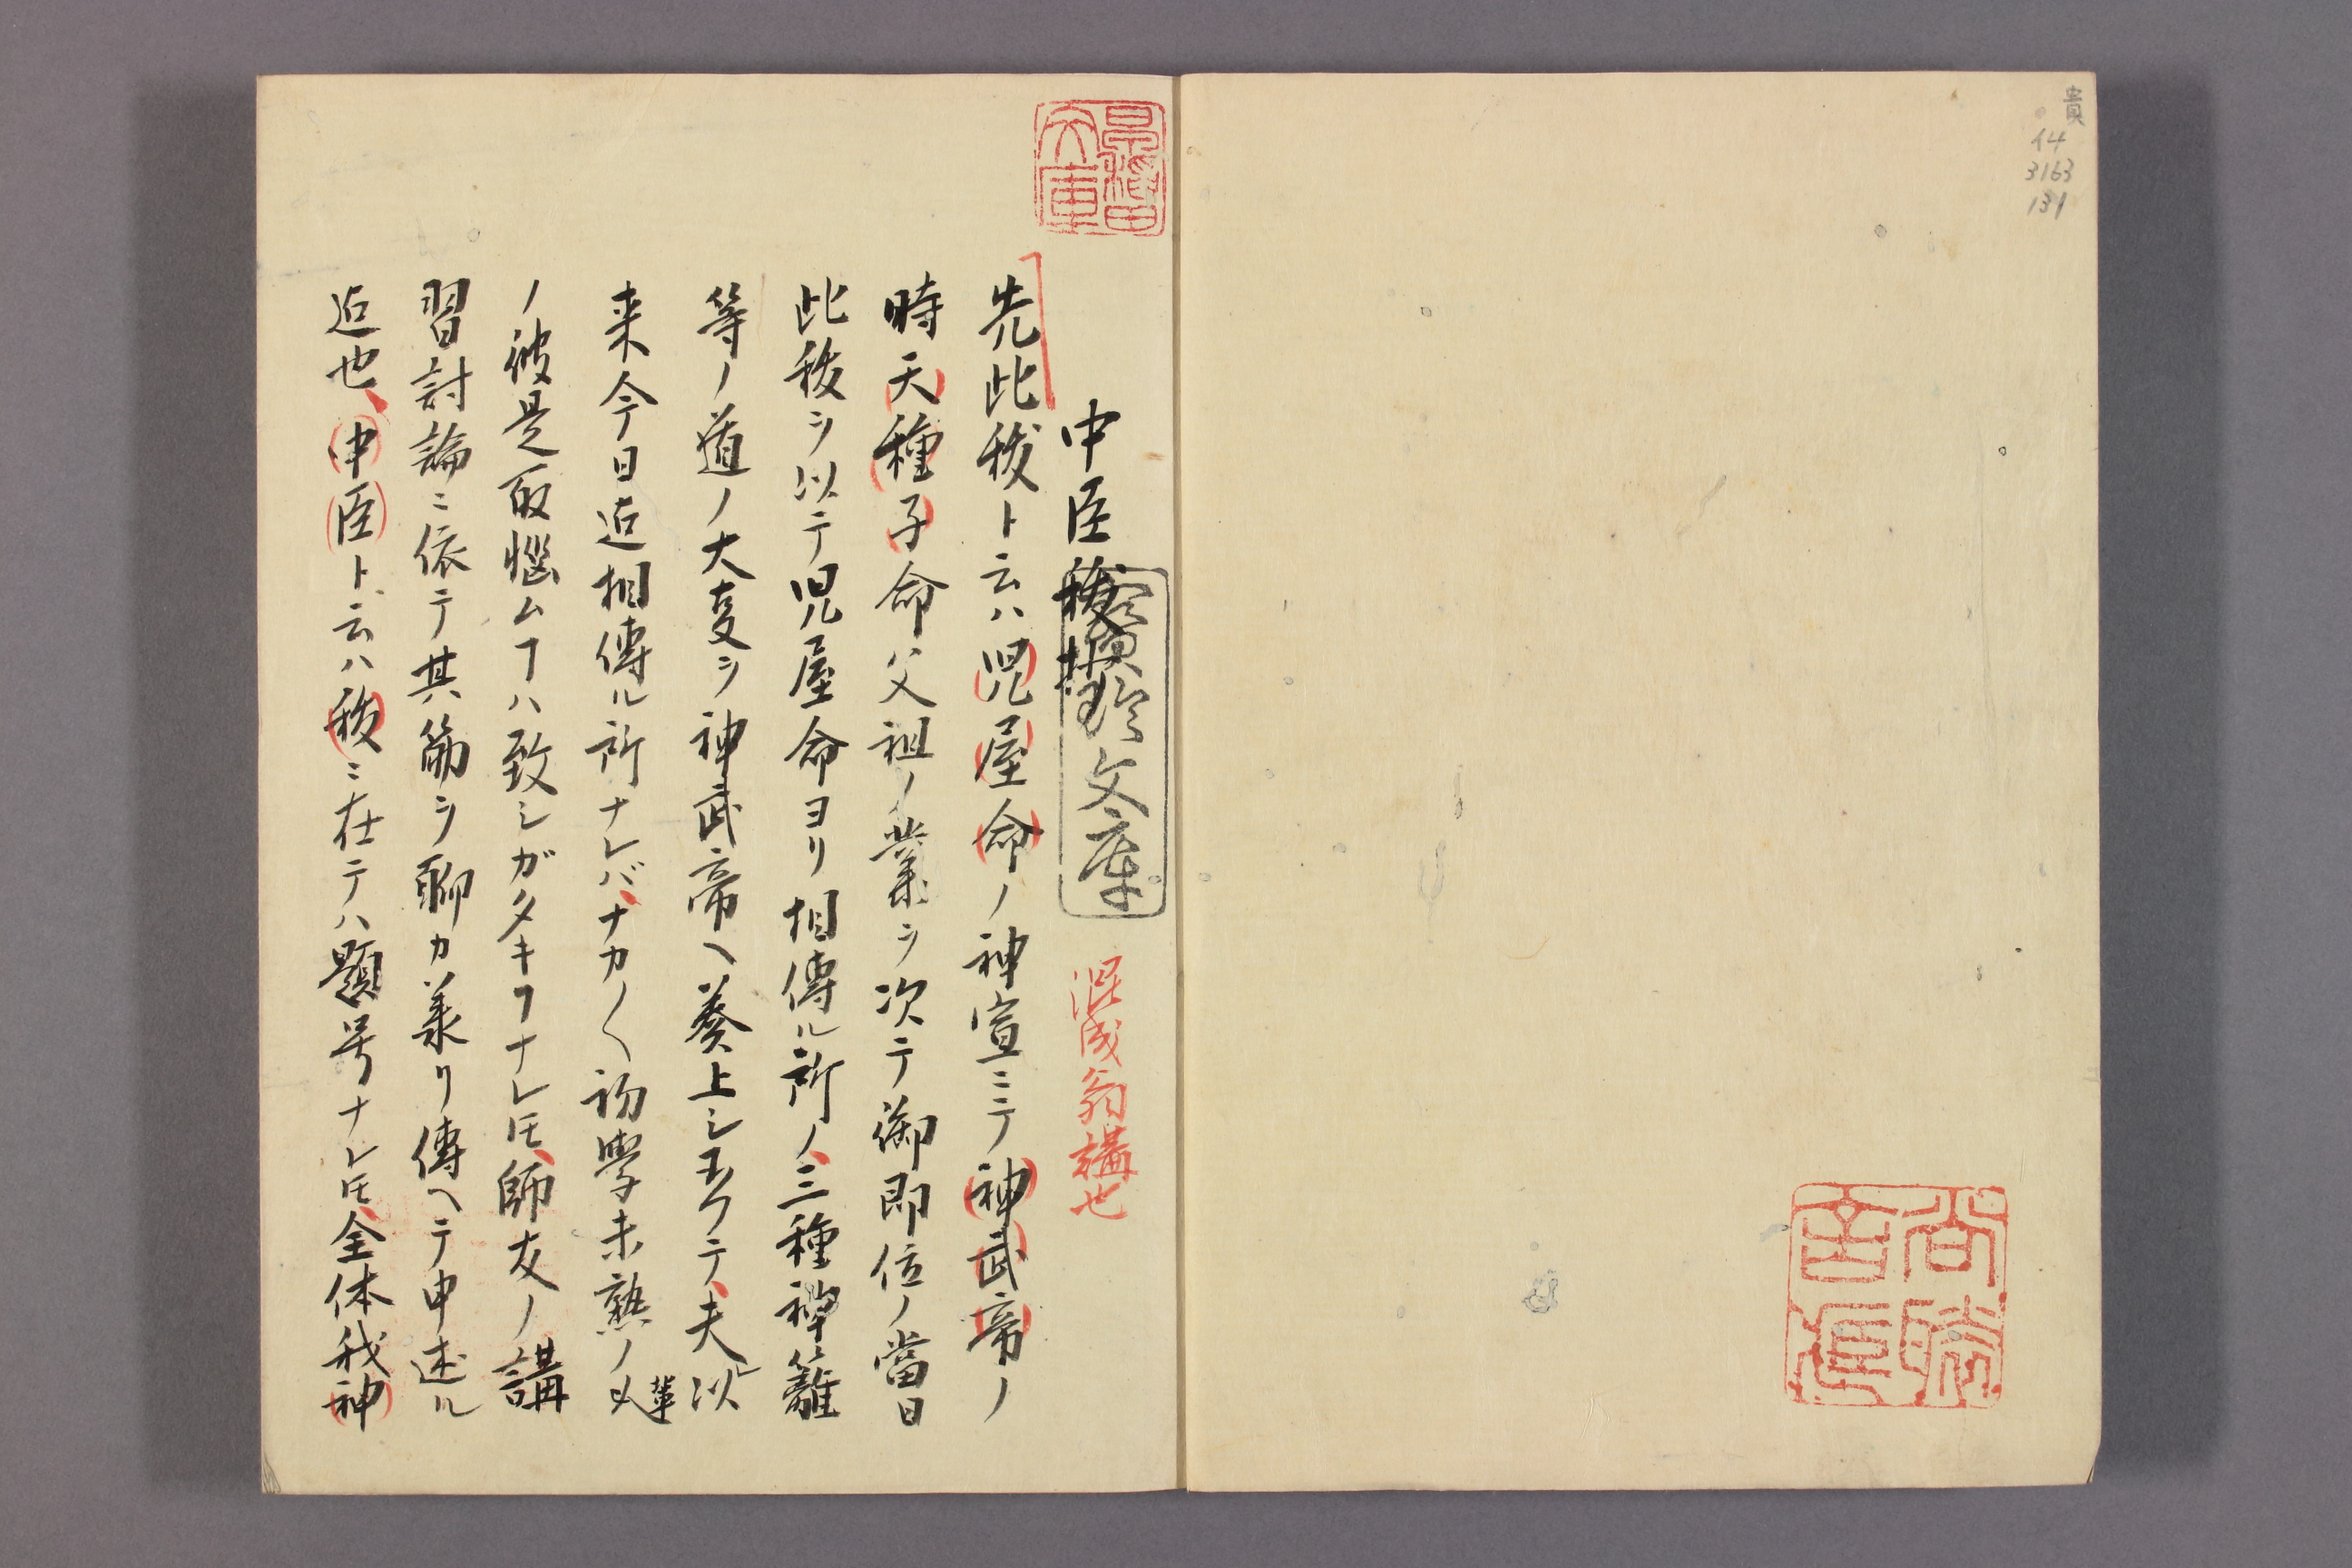 貴
イ4
3163
131
中臣祓
寳玲文庫
混成翁講也
先此祓ト云ハ児屋命ノ神宣ニテノ神武帝ノ
時天種子命父祖ノ業ヲ次テ御即位ノ當日
此祓ヲ以テ児屋命ヨリ相傳ル所ノ三種神籬
等ノ道ノ大㕝ヲ神武帝ヘ奏上シ玉フテ夫ヨリ以
来今日迠相傳ル所ナレバナカ〱初學未熟ノ
輩
ノ彼是取惱ムヿハ致シガタキヿナレ𪜈師友ノ講
習討論ニ依テ其筋ヲ聊カ義リ傳ヘテ申述ル
迠也中臣ト云ハ祓ニ在テハ題号ナレ𪜈全体我神